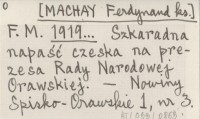 0 [MACHAY Ferdynand ks.]
F. M. 1919... Szkaradna
napaść czeska na pre-
zesa Rady Narodowej
Orawskiej. — Nowiny
Spisko-Orawskie 1, nr 3.